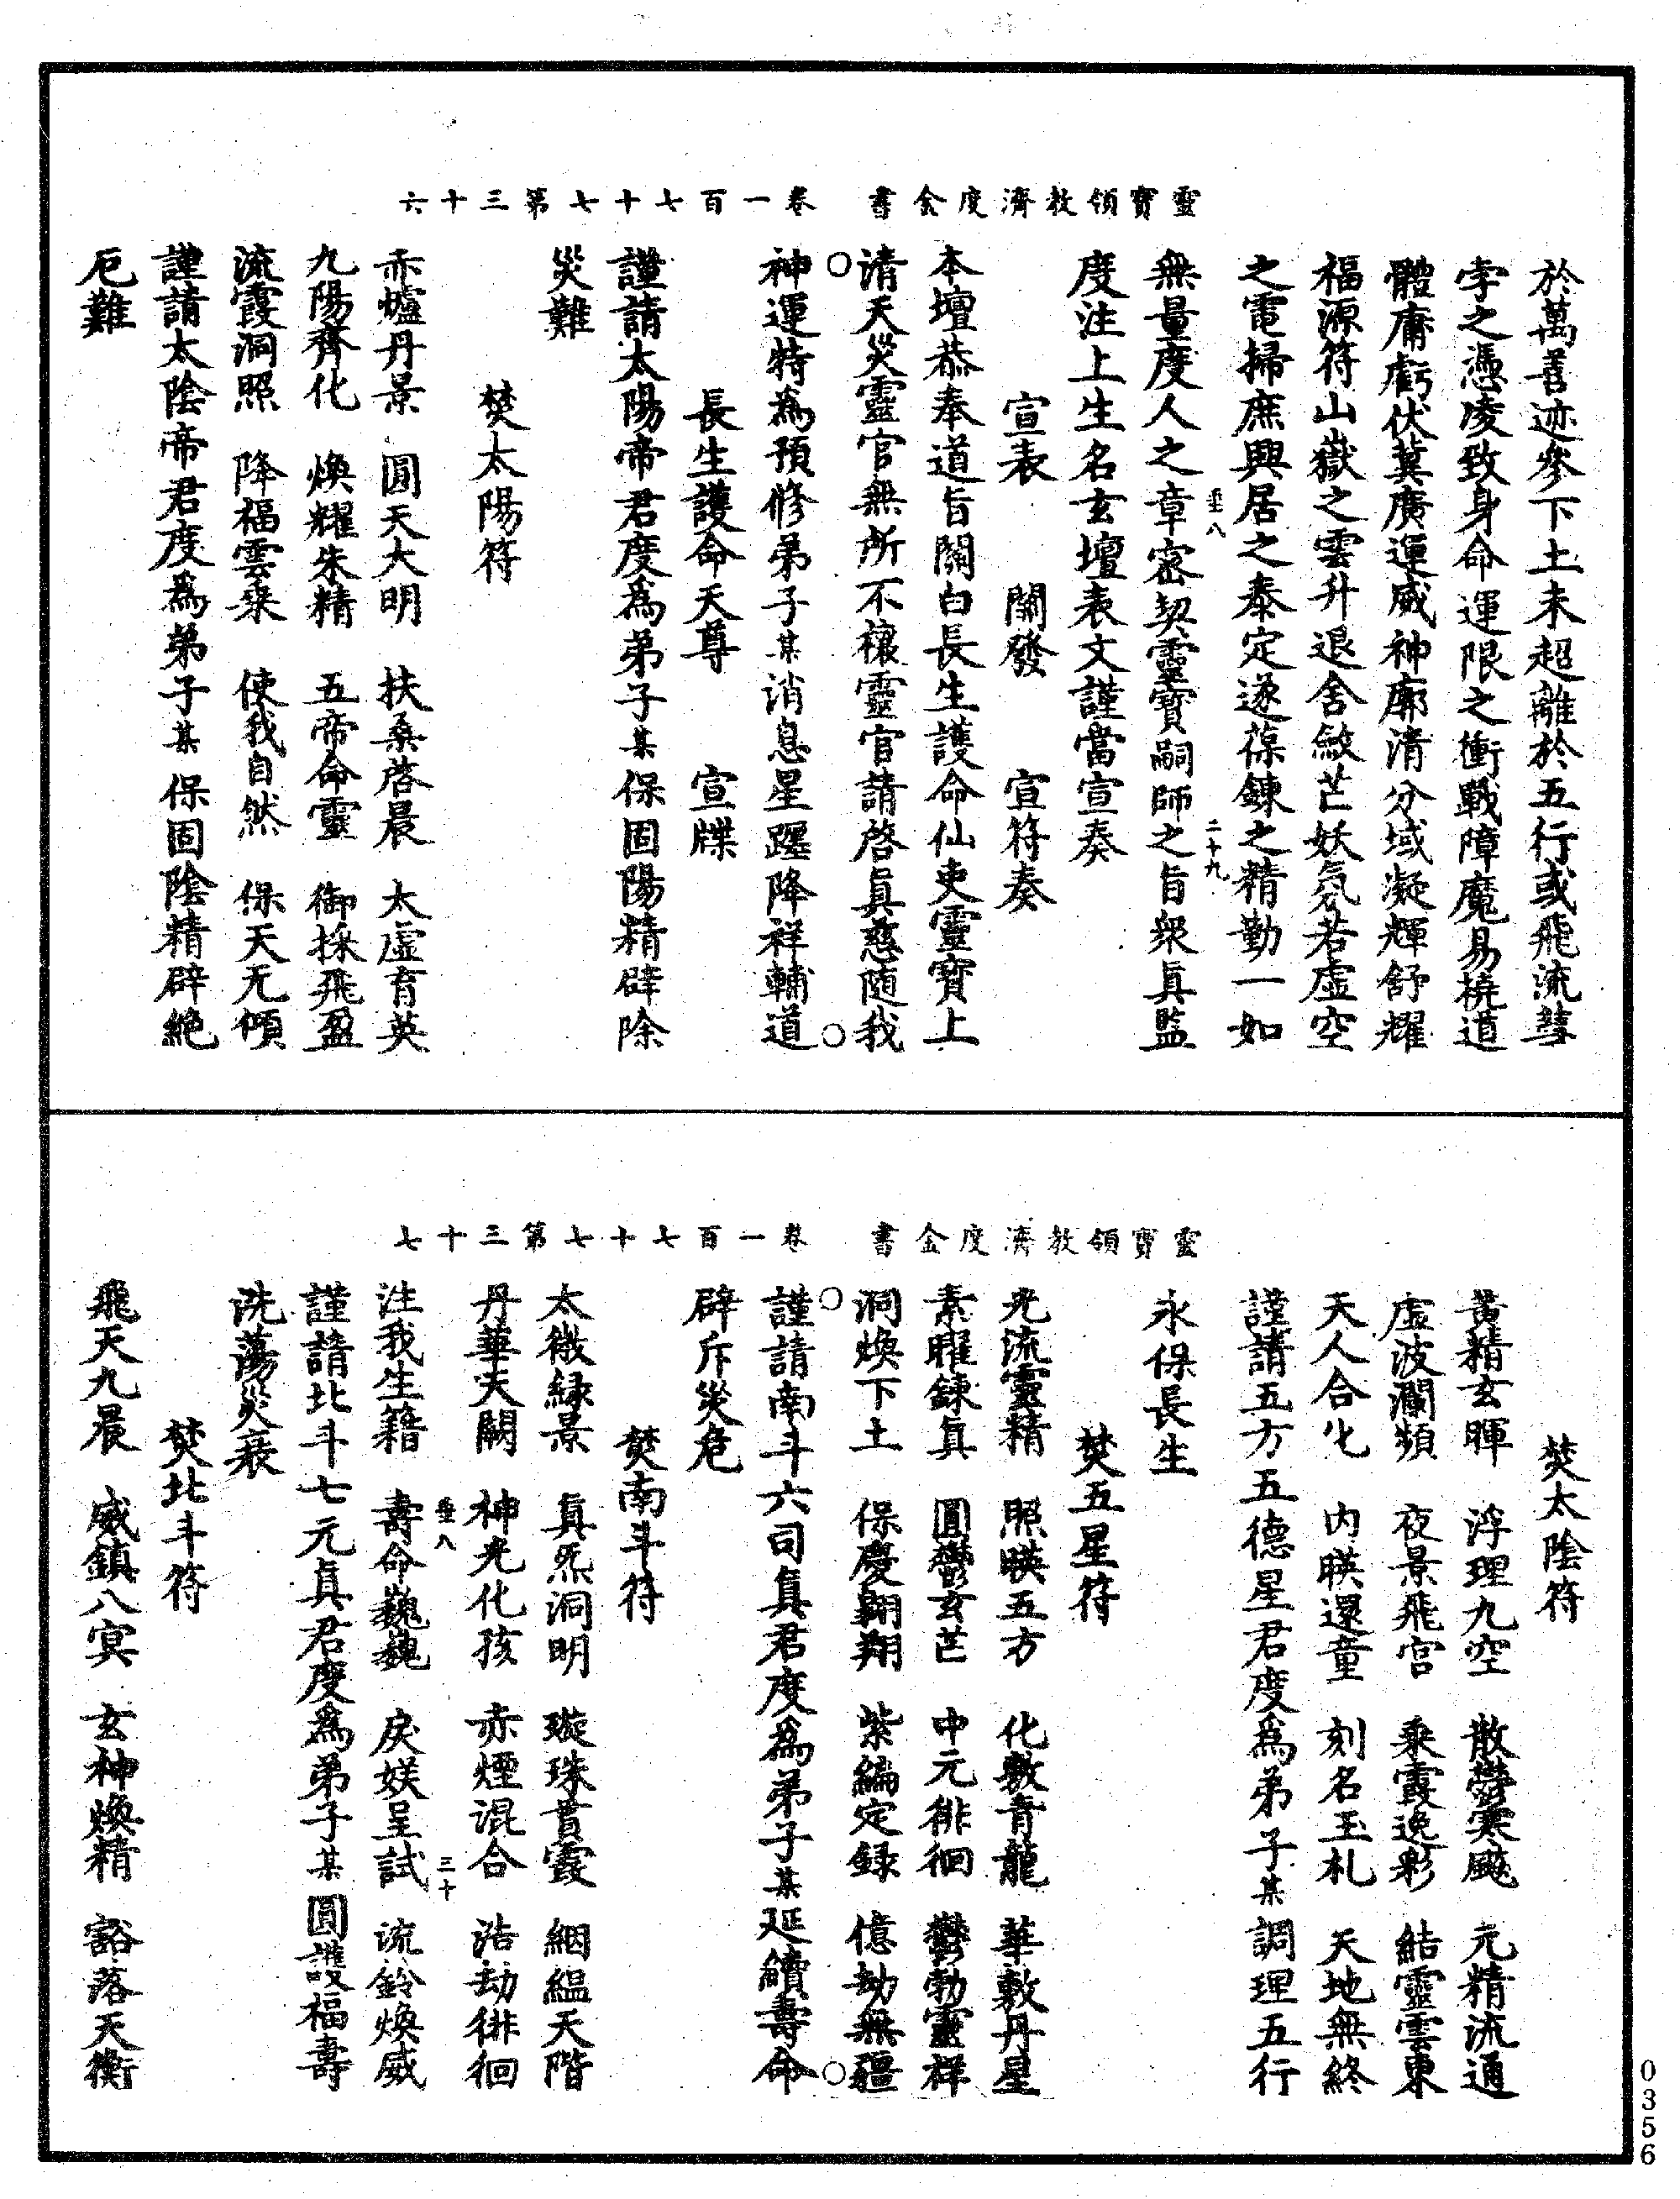 靈寶領教濟度金書　卷一百七十七第三十六
於萬善迹參下土未超離於五行或飛流彗
孛之憑凌致身命運限之衝戰障魔易撓道
體庸虧伏冀廣運威神廓清分域凝輝舒耀
福源符山嶽之雲升退舍斂芒妖氛若虛空
之電掃庶興居之泰定遂葆鍊之精勤一如
垂八　二十九
無量度人之章密契靈寶嗣師之旨眾真監
度注上生名玄壇表文謹當宣奏
宣表　關發　宣符奏
本壇恭奉道旨關白長生護命仙吏靈寶上
清天災靈官無所不禳靈官請啓真慈隨我
神運特為預修弟子某消息星躔降祥輔道
長生護命天尊　宣牒
謹請太陽帝君度為弟子某保固陽精辟除
災難
焚太陽符
赤爐丹景　圓天大明　扶桑啓晨　太虛育英
九陽齊化　煥耀朱精　五帝命靈　御採飛盈
流霞洞照　降福雲乘　使我自然　保天无傾
謹請太陰帝君度為弟子某保固陰精辟絕
厄難
靈寶領教濟度金書　卷一百七十七第三十七
焚太陰符
黃精玄暉　浮理九空　散鬱寒飈　元精流通
虛波瀾頻　夜景飛宮　乘霞逸彩　結靈雲東
天人合化　內暎還童　刻名玉札　天地無終
謹請五方五德星君度為弟子某調理五行
永保長生
焚五星符
光流靈精　照暎五方　化敷青龍　華敷丹星
素曜鍊真　圓鬱玄芒　中元徘徊　鬱勃靈祥
洞煥下土　保慶翱翔　紫編定録　億劫無疆
謹請南斗六司真君度為弟子某延續壽命
辟斥災危
焚南斗符
太微緑景　真炁洞明　璇珠貫霞　絪縕天階
丹華天關　神光化孩　赤煙混合　浩劫徘徊
垂八　三十
注我生籍　壽命巍巍　戾妖呈試　流鈴煥威
謹請北斗七元真君度為弟子某圓護福壽
洗蕩災衰
焚北斗符
飛天九晨　威鎮八冥　玄神煥精　豁落天衡
0356